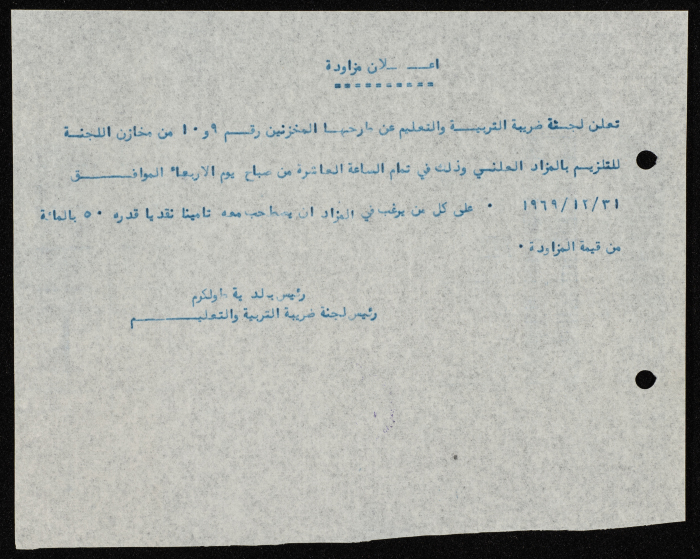 اعـــلان مزاودة
تعلن لجنة ضريبة التربيـــة والتعليم عن طرحهـا المخزنين رقـم ٩ و ١٠ من مخازن اللجنـة
للتلزيـم بالمزاد العلنـي وذلك في تمام الساعة العاشرة من صباح يوم الاربعاء الموافـــق
١٩٦٩/١٢/٣١ ٠ على كل من يرغب في المزاد ان يصطحب معه تامينا نقديا قدره ٥٠ بالمائة
من قيمة المزاودة ٠
رئيس بلدية طولكرم
رئيس لجنة ضريبة التربية والتعليــــــم